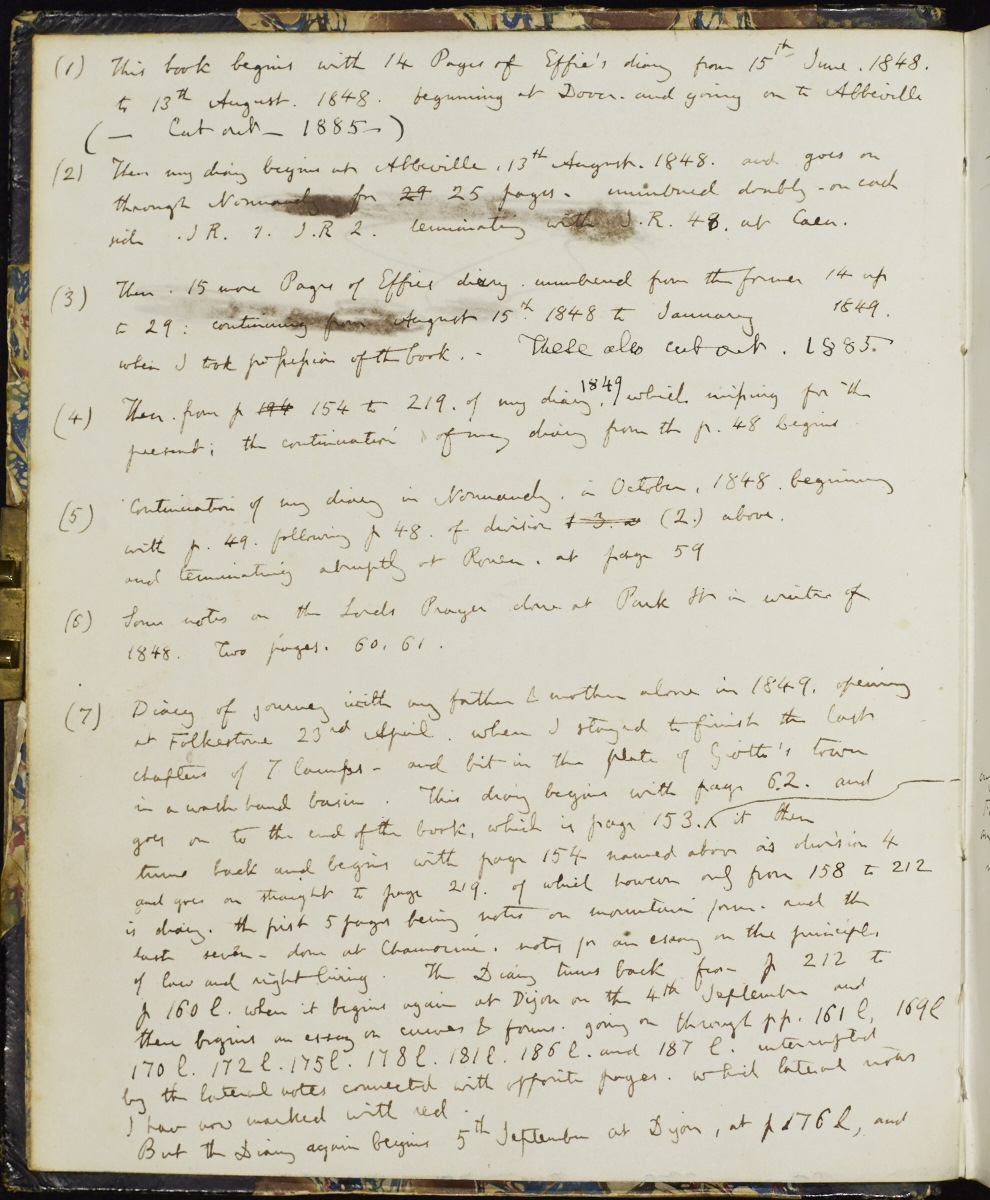 (1) This book begins with 14 Pages of Effie's diary from 15th June. 1848.
to 13th August. 1848. beginning at Dover. and going on to Abbeville
(— Cut out — 1885—)
(2) Then my diary begins at Abbeville. 13th August. 1848. and goes on
through Normandy for 29 25 pages. numbered doubly - on each
side. J R. 1. J. R 2. terminating with J. R. 48. at Caen.
(3) Then. 15 more Pages of Effies diary. numbered from the former 14 up
to 29: continuing from August 15th 1848 to January 1849.
when I took possession of the book. - These also cut out. 1885.
(4) Then. from p 194 154 to 219. of my diary, 1849 which missing for the
present; the continuation of my diary from the p. 48 begins
(5) Continuation of my diary in Normandy. in October, 1848. beginning
with p. 49. following p 48. of division (2.) above.
and terminating abruptly at Rouen. at page 59
(6) Some notes on the Lords Prayer done at Park St in winter of
1848. Two pages. 60. 61.
(7) Diary of journey with my father & mother alone in 1849. opening
at Folkestone 23rd April. when I stayed to finish the last
chapters of 7 Lamps - and bit in the plate of Giotto's tower
in a wash hand basin. This diary begins with page 62. and
goes on to the end of the book, which is page 153. it then
turns back and begins with page 154 named above as division 4
and goes on straight to page 219. of which however only from 158 to 212
is diary. the first 5 pages being notes on mountain form. and the
last seven - done at Chamouni. notes for an essay on the principles
of law and right living. The Diary turns back from p 212 to
p 160 l. when it begins again at Dijon on the 4th September and
then begins an essay on curves & forms. going on through pp. 161 l, 169 l
170 l. 172 l. 175 l. 178 l. 181 l. 186 l. and 187 l. interrupted
by the lateral notes connected with opposite pages. which lateral notes
I have now marked with red.
But the Diary again begins 5th September at Dijon, at p 176 l, and